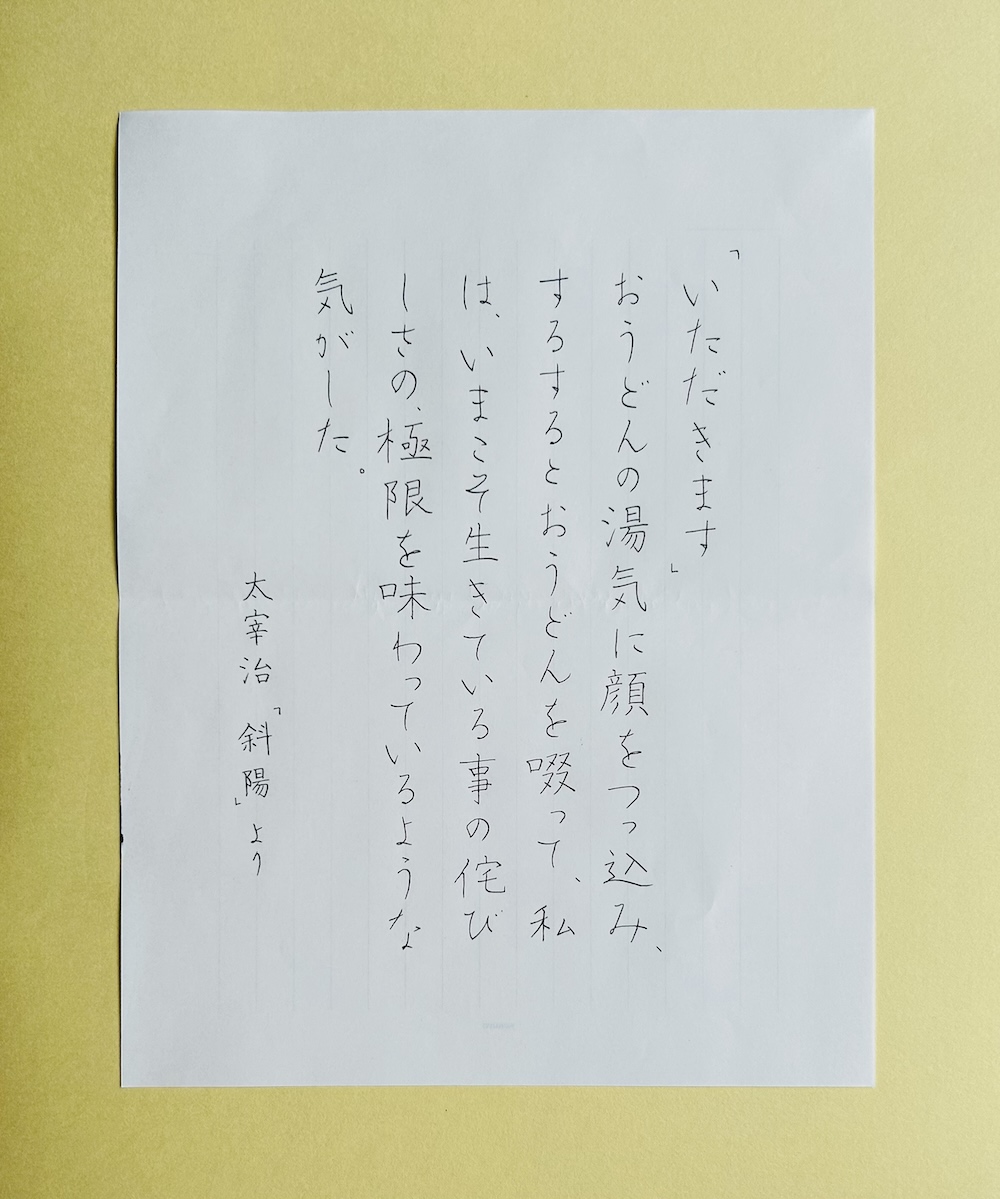 「いただきます」
おうどんの湯気に顔をつっ込み、
するするとおうどんを啜って、私
は、いまこそ生きている事の侘び
しさの、極限を味わっているような
気がした。
太宰治「斜陽」より